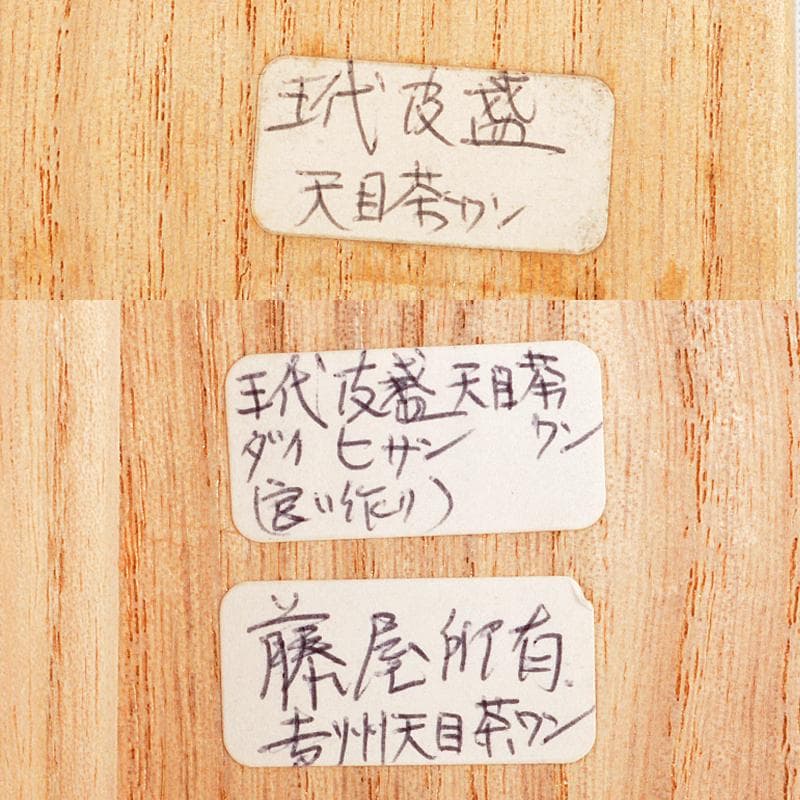 玳皮盞
天目茶ワン
玳皮盞天目茶
ダイ ヒサン ワン
(良い作り)
藤屋所有
吉州天目茶ワン